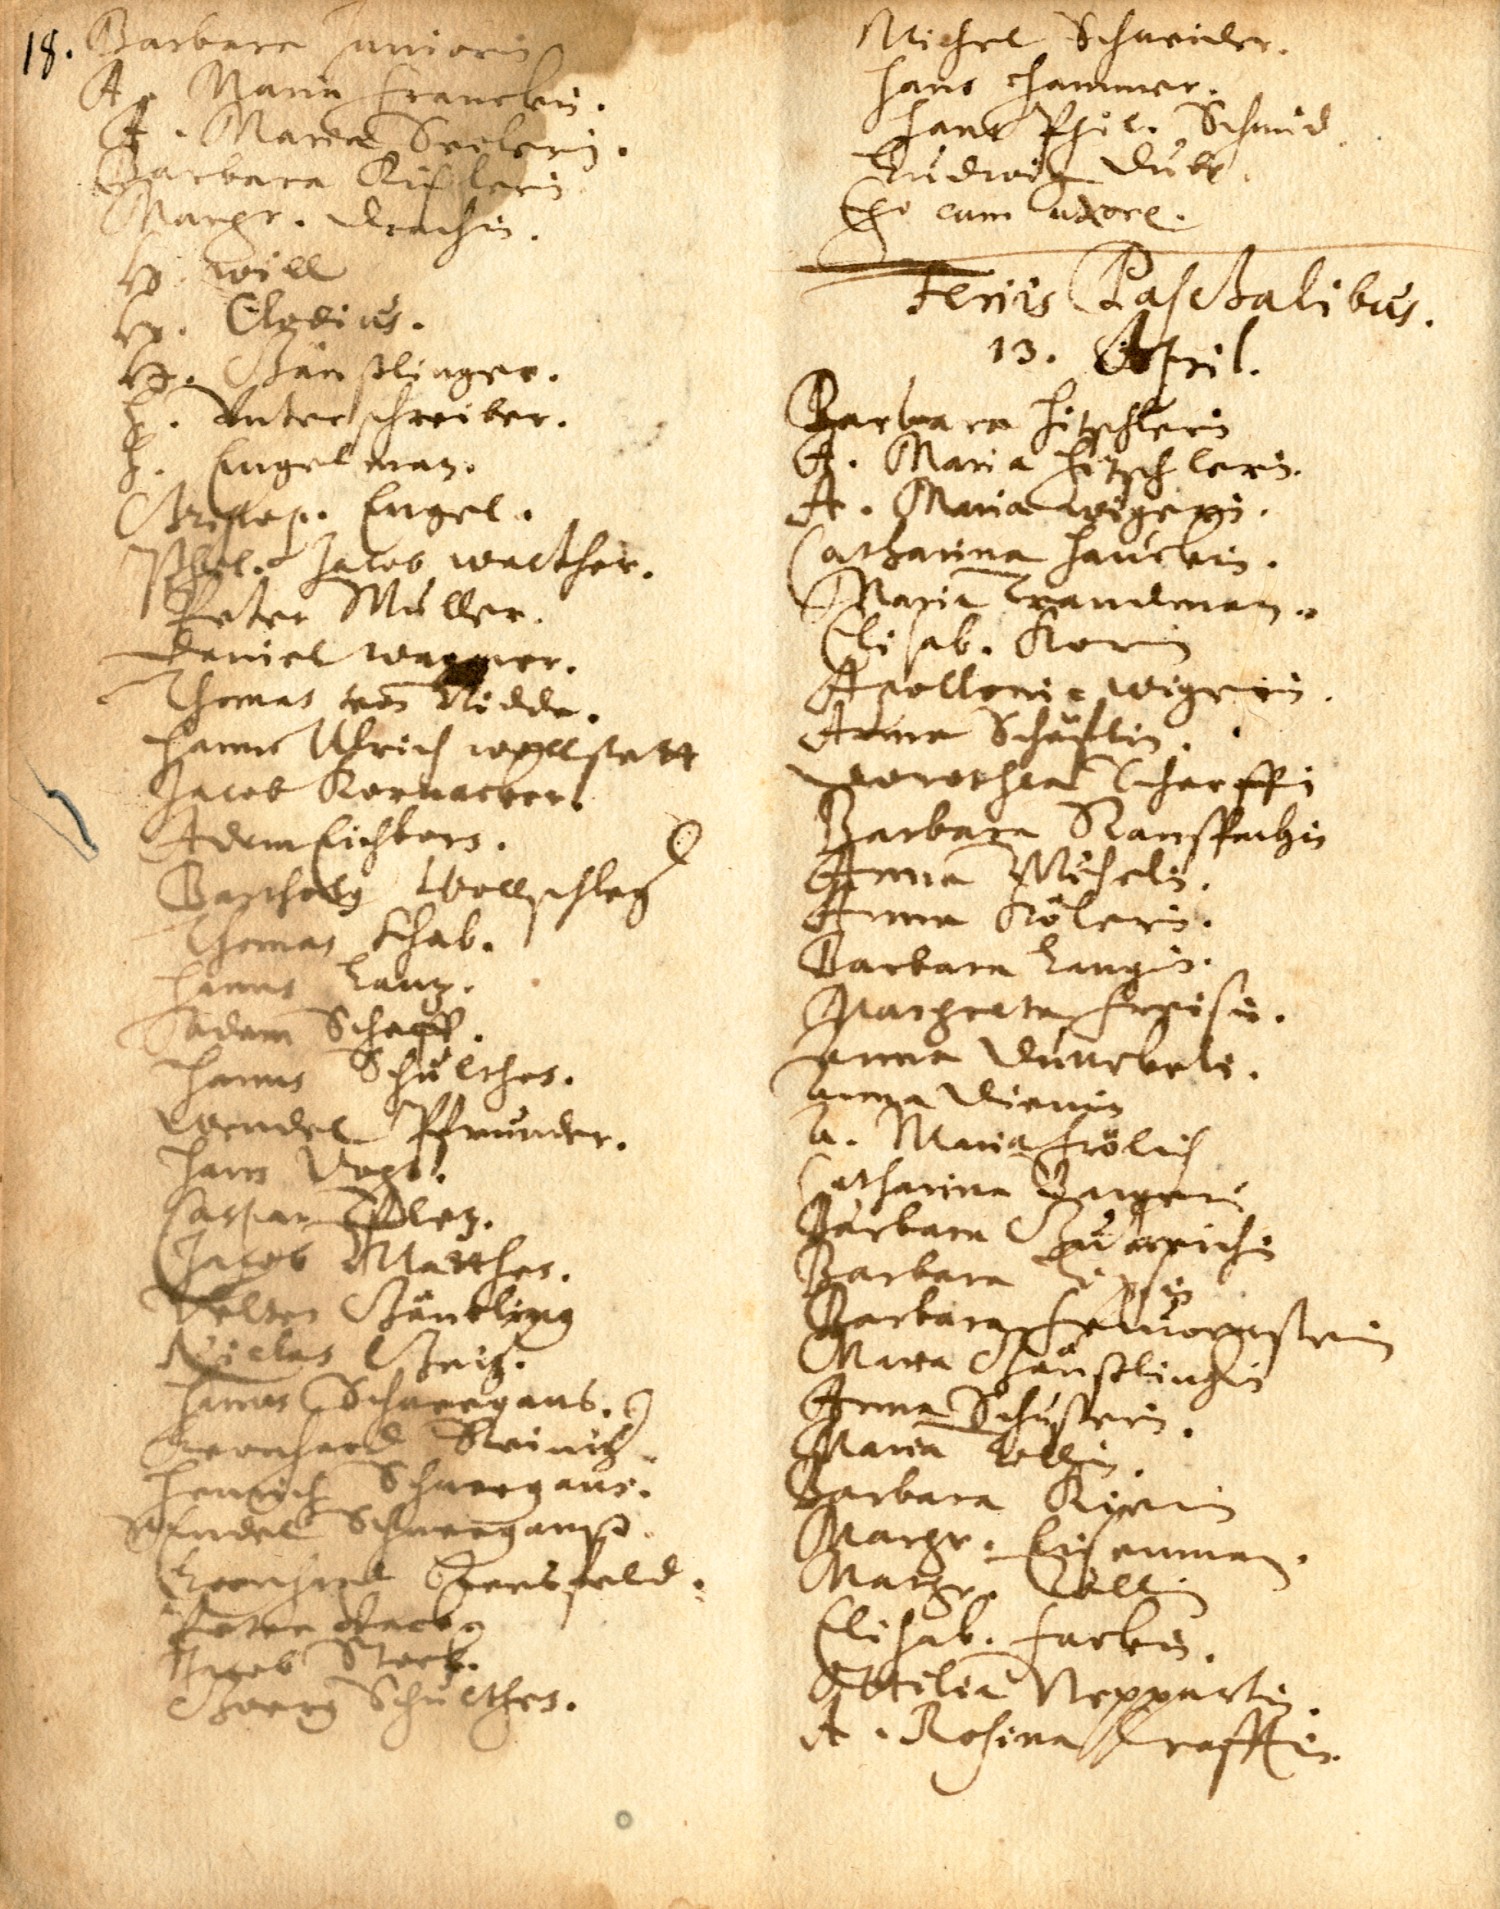 18. Barbara Juniorin
A. Maria Franckin.
A. Maria Seelerin.
Barbara Kißlerin
Margr. Drachin.
H. Will
H. Clodius.
H. Gänßlinger.
H. Unterschreiber.
H. Engelman.
Christop. Engel.
Phil. Jacob Walther.
Peter Müller.
Daniel Wagner.
Thomas von Nidda.
Hanns Ulrich Wollstatt
Jacob Kornacker.
Adam Eichhorn.
Barthol Wollschleg
Thomas Schab.
Hanns Lang.
Adam Schaff.
Hanns Schulthes.
Wendel Pfründer.
Hans Vogt.
Caspar
Jacob Matthes.
Velten Bänckling
Niclas
Hanns Schneegans.
Leonhard Reinich
Henrich Schneegans.
Wendel Schneeganß.
Leonhard Beersfeld.
Peter
Jacob Storck.
Georg Schulthes.
Michel Schneider.
Hans Hammer.
Hans Phil. Schmid
Ludwig Dubs
Ego cum uxore.
Feriis Paschalibus.
13. April.
Barbara Hitschlerin
A. Maria Hitschlerin.
A. Maria Wigerin.
Catharina Hauckin.
Maria Trandman.
Elisab. Kornin
Apollonia Wigerin.
Anna Schüstlin.
Dorothea Scharffin
Barbara Ransspachin
Anna Michelin.
Anna Kölerin.
Barbara Langin.
Margreta Freisin.
Anna Dünckelin.
Anna Dienin
A. Maria Frölich
Catharina Bargerin
Barbara
Barbara
Barbara Fewrenstein
Maria Gänßlingin
Anna Schusterin.
Maria Zollin
Barbara Kipin
Margr. Eisenman.
Margr. Zollin
Elisab. Farbin.
Ottilia Neppartin.
A. Rosina Krafftin.